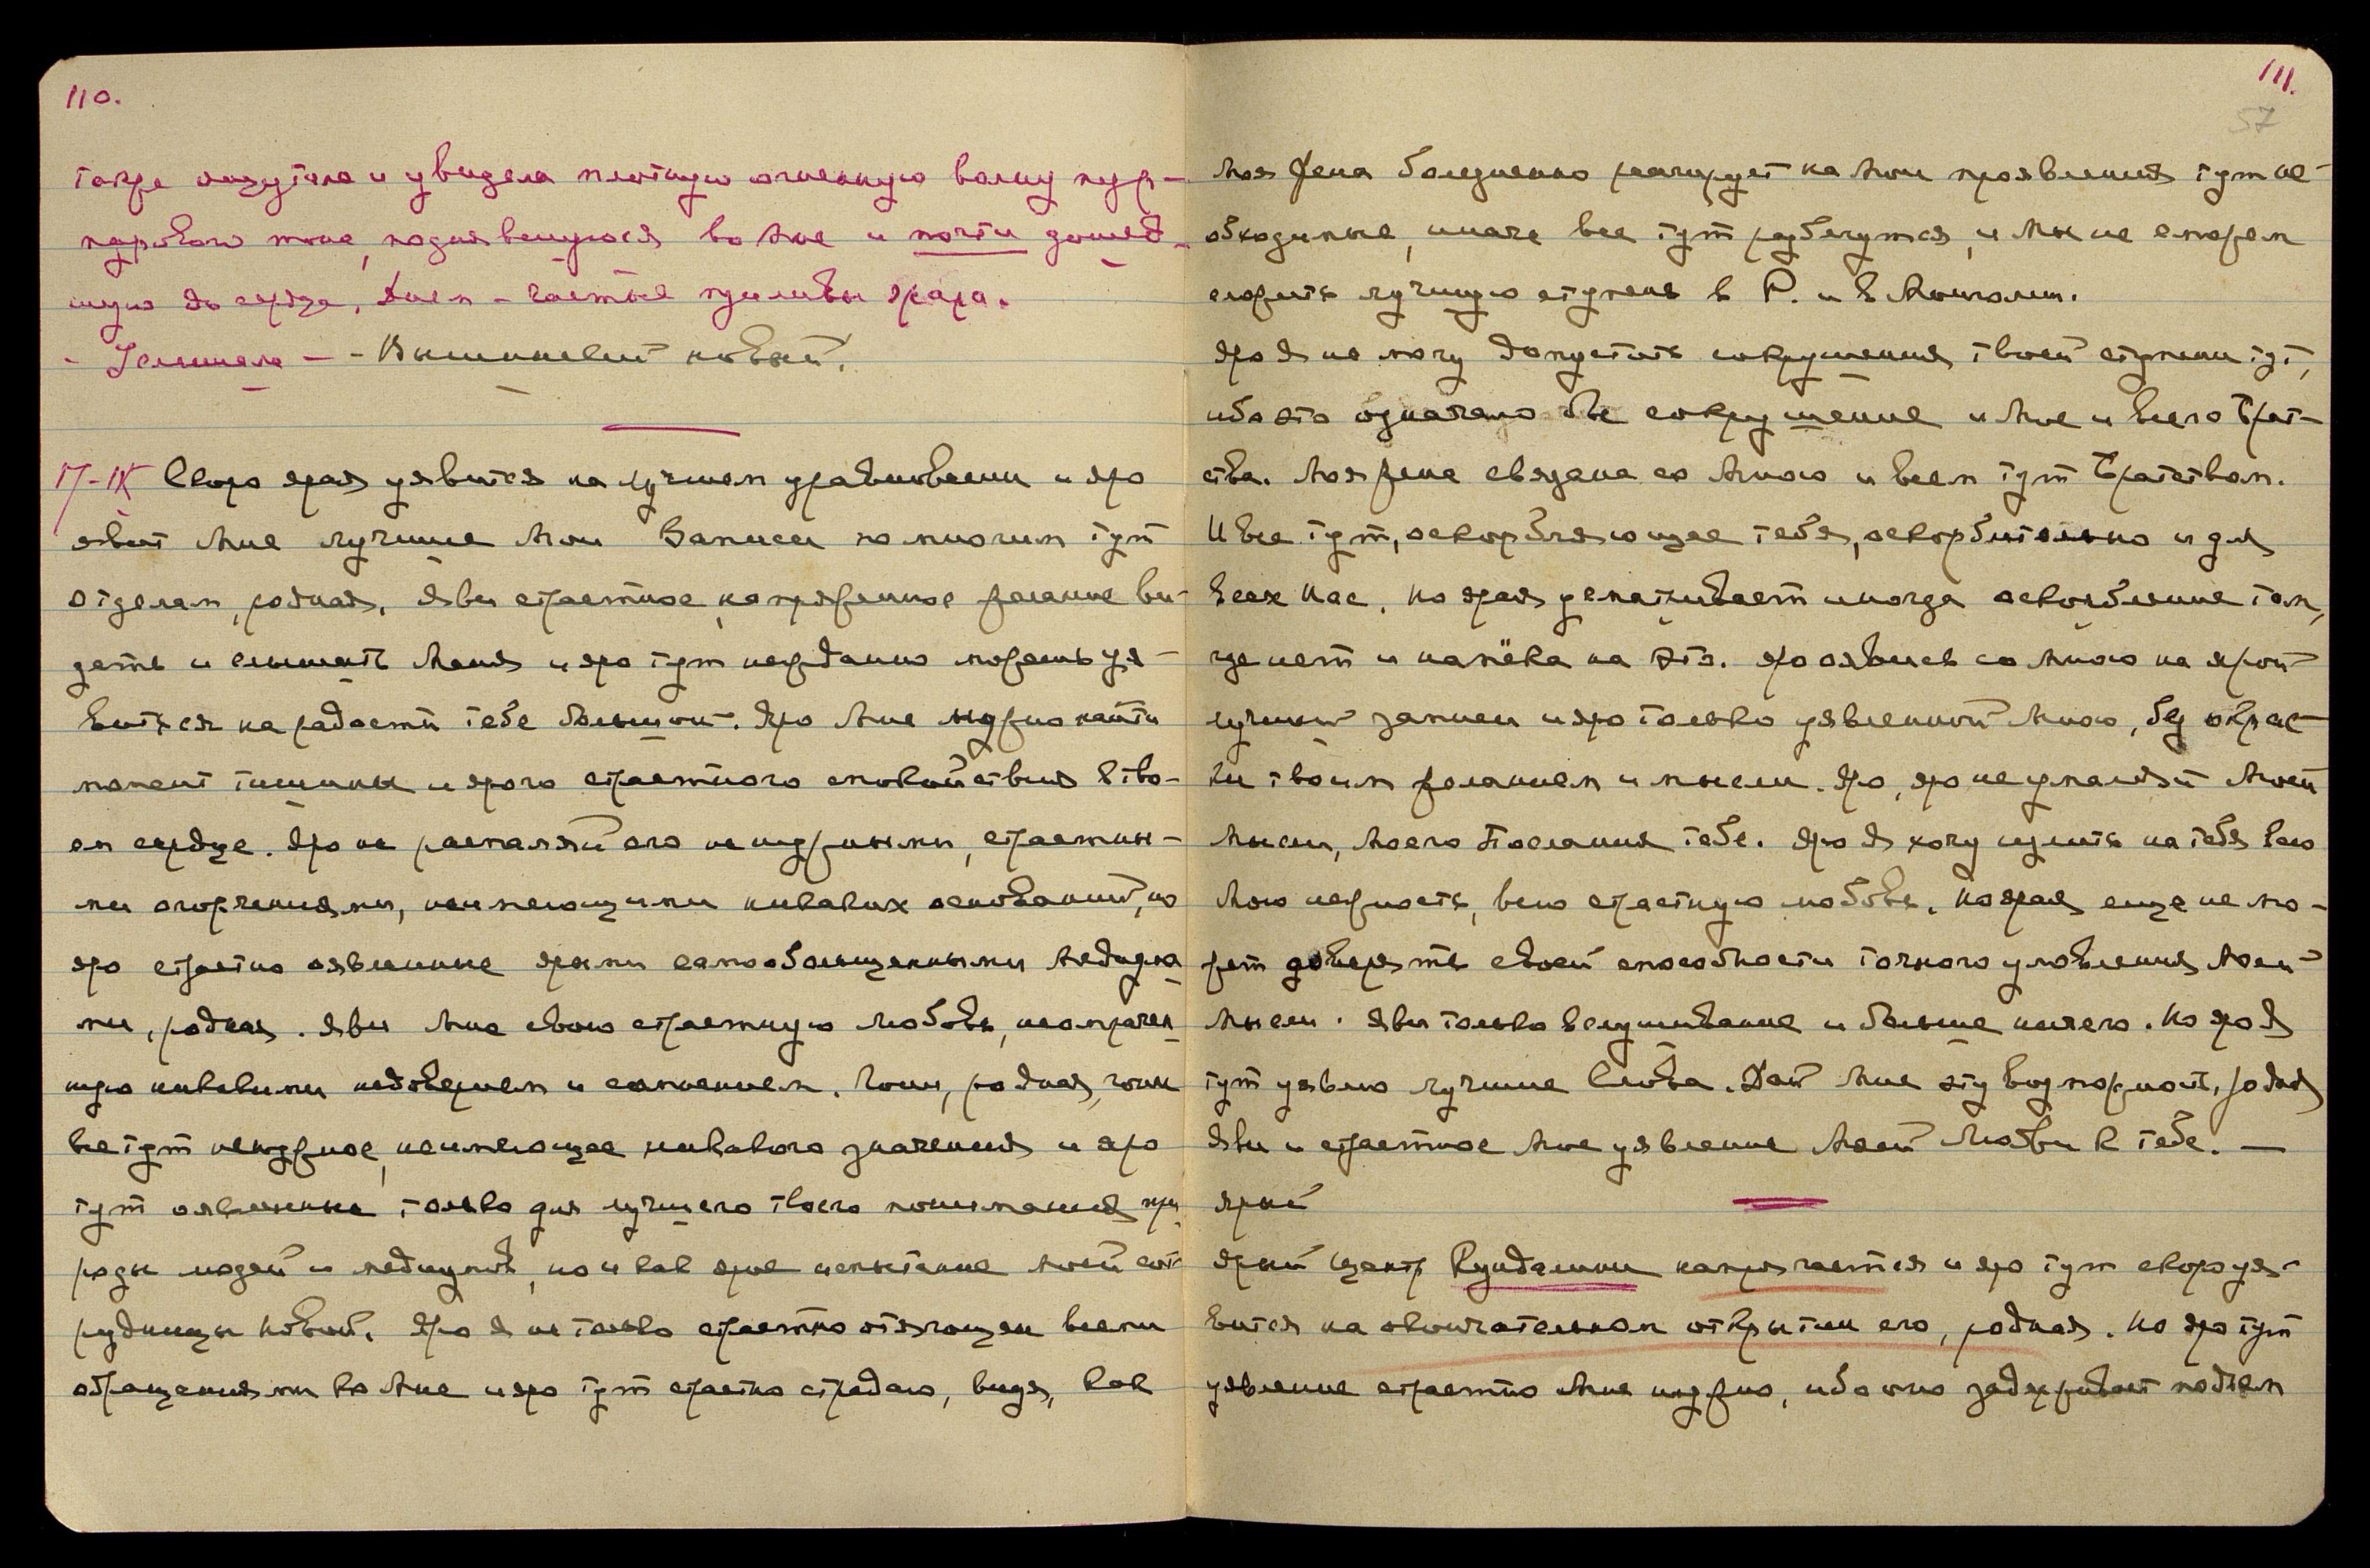 110.
также ощутила и увидела плотную огненную волну пур-
пуровом тоне, поднявшуюся во мне и почти дошед-
шую до сердца. Днем - частые приливы жара.
- Услышала - - Вышинский новый.
17-IX Скоро ярая уявится на лучшем уравновесии и яро
явит Мне лучшие Мои Записи по многим тут
отделам, родная. Яви страстное, напряженное желание ви-
деть и слышать Меня и яро тут нежданно можешь уя-
виться на радости тебе большой. Яро Мне нужно найти
момент тишины и ярого страстного спокойствия в тво-
ем сердце. Яро не распаляй его ненужными, страстны-
ми огорчениями, неимеющими никаких оснований, но
яро страстно оявленные ярыми самообольщенными Медиума
ми, родная. Яви Мне свою страстную Любовь, неомрачен
ную никакими недоверием и сомнением. Гони, родная, гони
все тут ненужное, неимеющее никакого значения и яро
тут оявленные только для лучшего твоего понимания при
роды людей и медиумов, но и как ярое испытание Моей сот
рудницы Новой. Яро Я не только страстно отягощен всеми
обращениями ко Мне и яро тут страстно страдаю, видя, как
111.
57
Моя Жена болезненно реагирует на Мои проявления тут не-
обходимые, иначе все тут разбегутся, и Мы не сможем
сложить лучшую ступень в Р. и в Монголии.
Яро Я не могу допустить сокрушения твоей ступени тут,
ибо это означало бы сокрушение и Мне и всего Брат-
ства. Моя жена связана со Мною и всем тут Братством.
И все тут, оскорбляющее тебя, оскорбительно и для
всех Нас. Но ярая усматривает иногда оскорбление там,
где нет и намёка на это. Яро оявись со Мною на ярой
лучшей записи и яро только уявленной Мною, без окрас-
ки твоим желанием и мысли. Яро, яро не умаляй Моей
Мысли, Моего Послания тебе. Яро Я хочу излить на тебя всю
Мою нежность, всю страстную любовь. Но ярая еще не мо-
жет доверять своей способности точного уловления Моей
Мысли. Яви только вслушивание и больше ничего. Но яро Я
тут уявлю лучшие Слова. Дай Мне эту возможность, родная
Яви и страстное Мне уявление Моей Любви к тебе. —
Ярый
Ярый центр Кундалини напрягается и яро тут скоро уя-
вится на окончательном открытии его, родная. Но яро тут
уявление страстно Мне нужно, ибо оно задерживает подъем